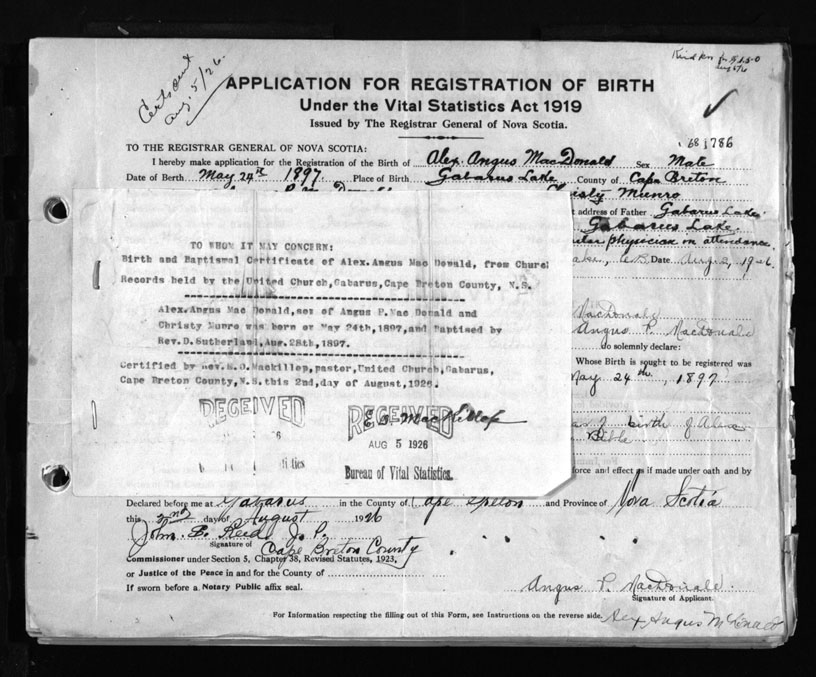 Certs sent
Aug. 5/26.
APPLICATION FOR REGISTRATION OF BIRTH
Under the Vital Statistics Act 1919
Issued by The Registrar General of Nova Scotia.
681786
TO THE REGISTRAR GENERAL OF NOVA SCOTIA:
I hereby make application for the Registration of the Birth of Alex. Angus MacDonald Sex Male
Date of Birth May 24th 1897. Place of Birth Gabarus Lake County of Cape Breton
Christy Munro
address of Father Gabarus Lake
Gabarus Lake.
physician in attendance.
C.B. Date Aug. 2, 1926
TO WHOM IT MAY CONCERN:
Birth and Baptismal Certificate of Alex. Angus Mac Donald, from Church
Records held by the United Church, Gabarus, Cape Breton County, N.S.
Alex. Angus Mac Donald, son of Angus P. Mac Donald and
Christy Munro was born on May 24th, 1897, and Baptised by
Rev. D. Sutherland, Aug. 28th, 1897.
Certified by Rev. E.O. MacKillop, pastor, United Church, Gabarus,
Cape Breton County, N.S. this 2nd, day of August, 1926.
RECEIVED
RECEIVED
AUG 5 1926
Bureau of Vital Statistics.
MacDonald
Angus P. MacDonald
do solemnly declare:
Whose Birth is sought to be registered was
May 24th, 1897
of birth of Alex
Bible
force and effect as if made under oath and by
Declared before me at Gabarus in the County of Cape Breton and Province of Nova Scotia
this 2nd day of August 1926
John B. Reid J. P.
Signature of
Cape Breton County
Commissioner under Section 5, Chapter 38, Revised Statutes, 1923,
or Justice of the Peace in and for the County of
If sworn before a Notary Public affix seal.
Angus P. MacDonald.
Signature of Applicant.
For Information respecting the filling out of this Form, see Instructions on the reverse side.
Alex Angus McDonald